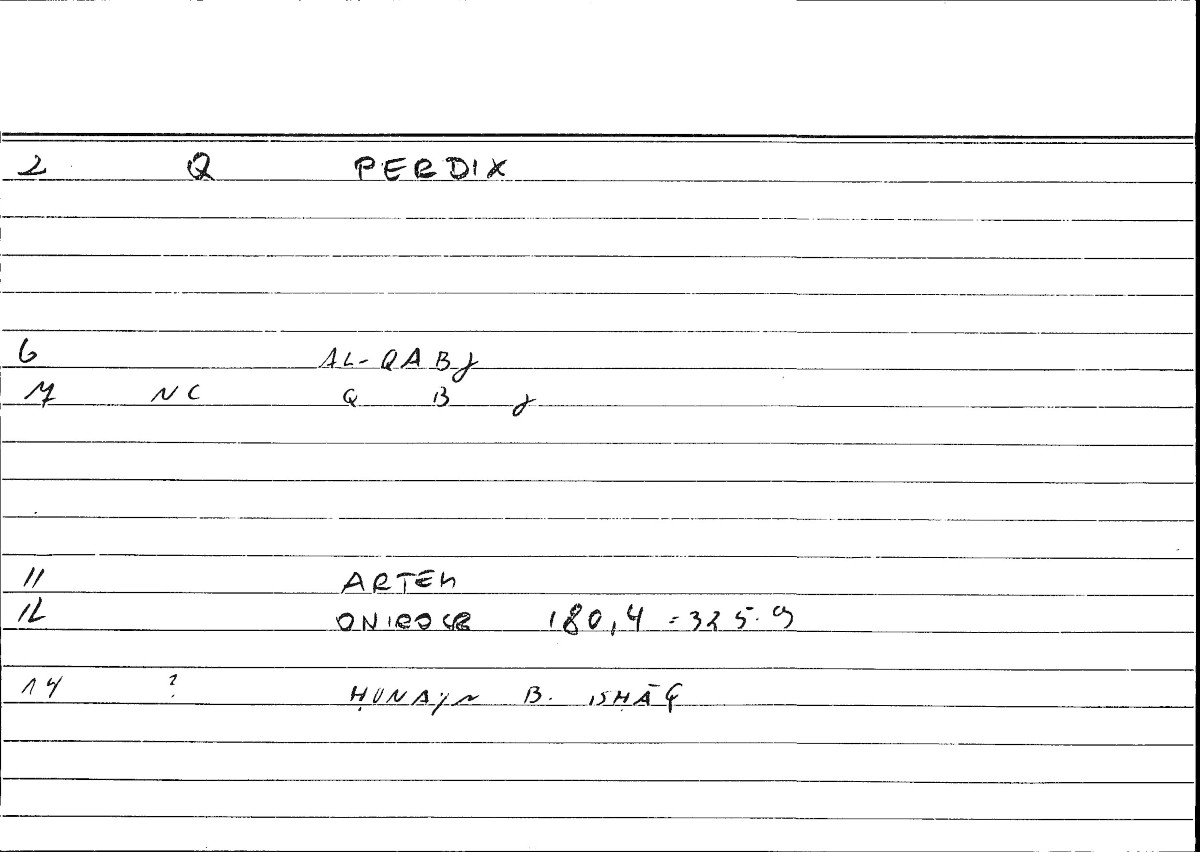 2 Q PERDIX
6 AL-QABJ
7 NC Q B J
11 ARTEM
12 ONIROCR 180,4 = 325.9
14 ? ḤUNAYN B. ISḤĀQ